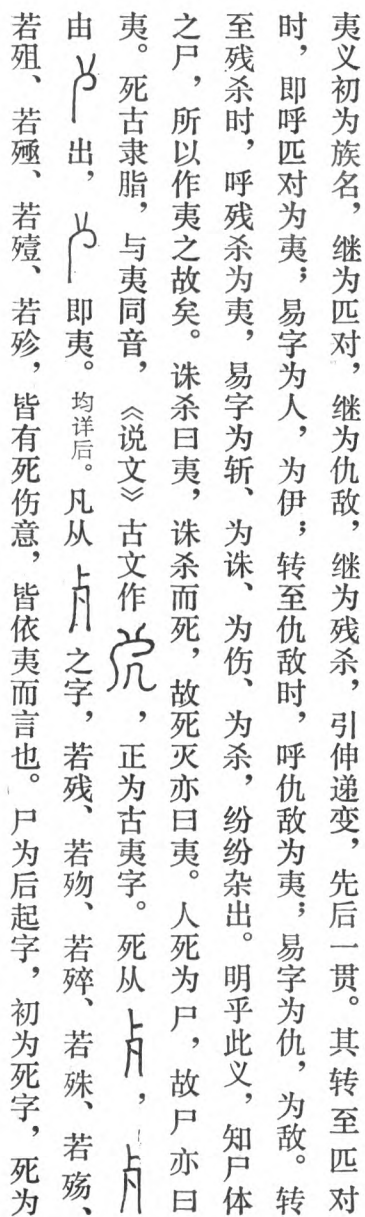 夷义初为族名，继为匹对，继为仇敌，继为残杀，引伸递变，先后一贯。其转至匹对
时，即呼匹对为夷；易字为人，为伊；转至仇敌时，呼仇敌为夷；易字为仇，为敌。转
至残杀时，呼残杀为夷，易字为斩、为诛、为伤、为杀，纷纷杂出。明乎此义，知尸体
之尸，所以作夷之故矣。诛杀曰夷，诛杀而死，故死灭亦曰夷。人死为尸，故尸亦曰
夷。死古隶脂，与夷同音，《说文》古文作，正为古夷字。死从，
由出，即夷。均详后。凡从之字，若残、若殀、若殚、若殊、若殇、
若殂、若殛、若殪、若殄，皆有死伤意，皆依夷而言也。尸为后起字，初为死字，死为